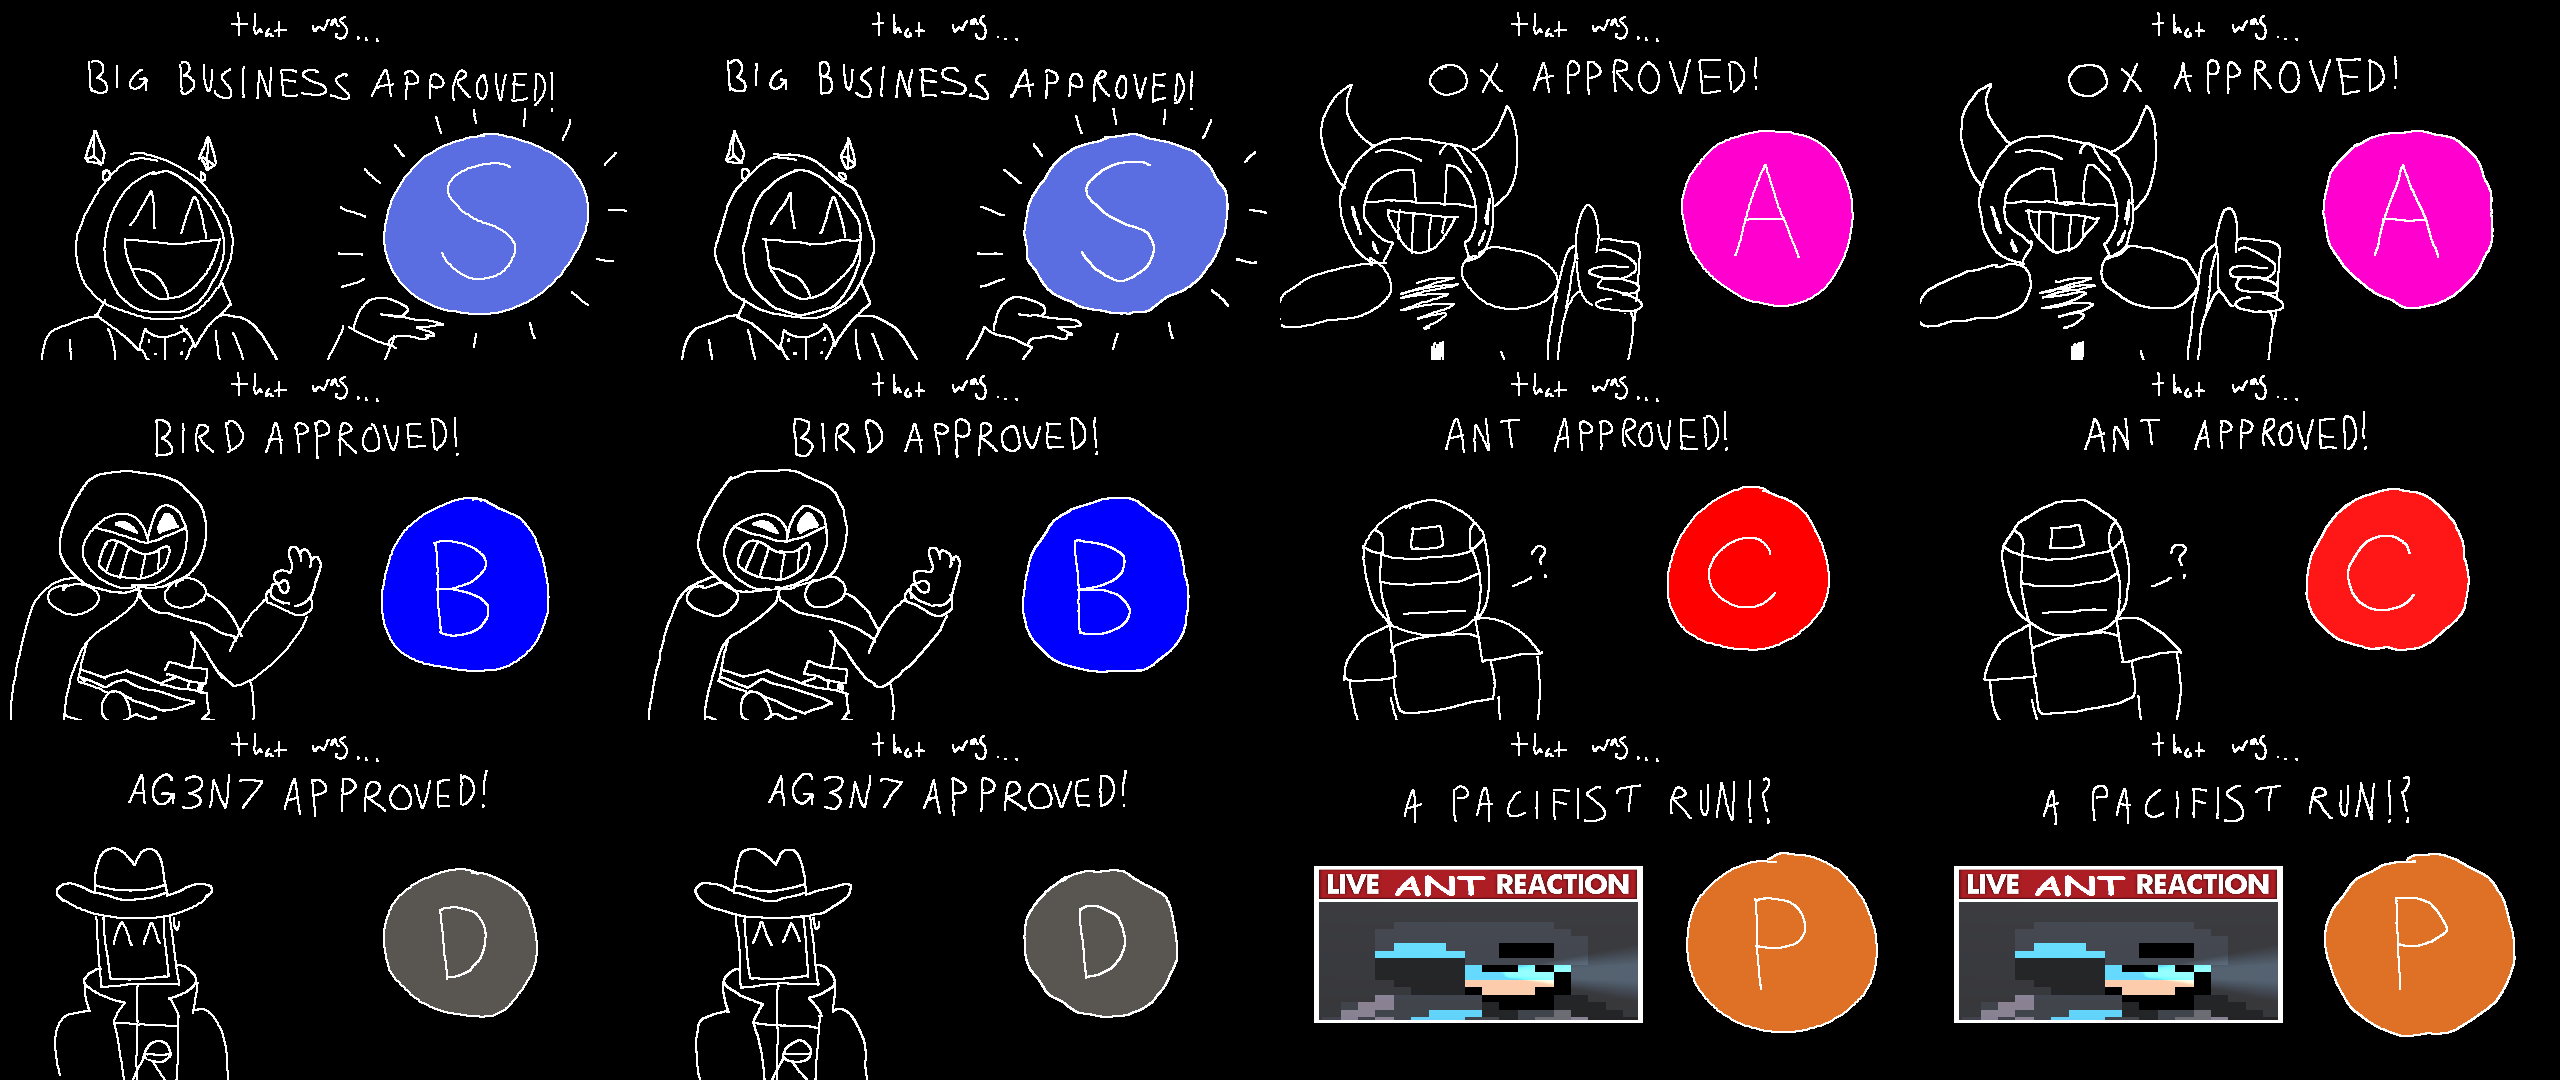 that was...
BIG BUSINESS APPROVED!
S
that was...
BIG BUSINESS APPROVED!
S
that was...
OX APPROVED!
A
that was...
OX APPROVED!
A
that was...
BIRD APPROVED!
B
that was...
BIRD APPROVED!
B
that was...
ANT APPROVED!
?
C
that was...
ANT APPROVED!
?
C
that was...
AG3N7 APPROVED!
D
that was...
AG3N7 APPROVED!
D
that was...
A PACIFIST RUN!?
LIVE ANT REACTION
P
that was...
A PACIFIST RUN!?
LIVE ANT REACTION
P